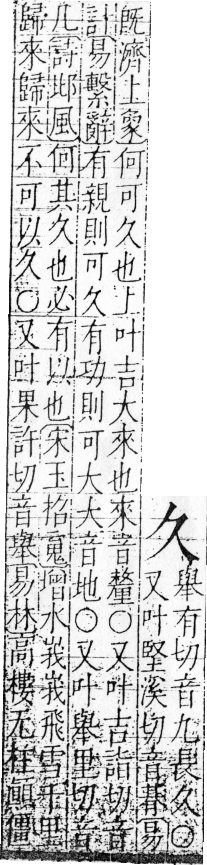 久
舉有切音九長久〇
又叶堅溪切音朞易
既濟上象何可久也上叶吉大來也來音釐〇又叶吉詣切音
計易繫辭有親則可久有功則可大大音地〇又叶舉里切音
几詩邶風何其久也必有以也宋玉招䰟增水峩峩飛雪千里
歸來歸來不可以久〇又叶果許切音舉易林高樓无柱顚僵